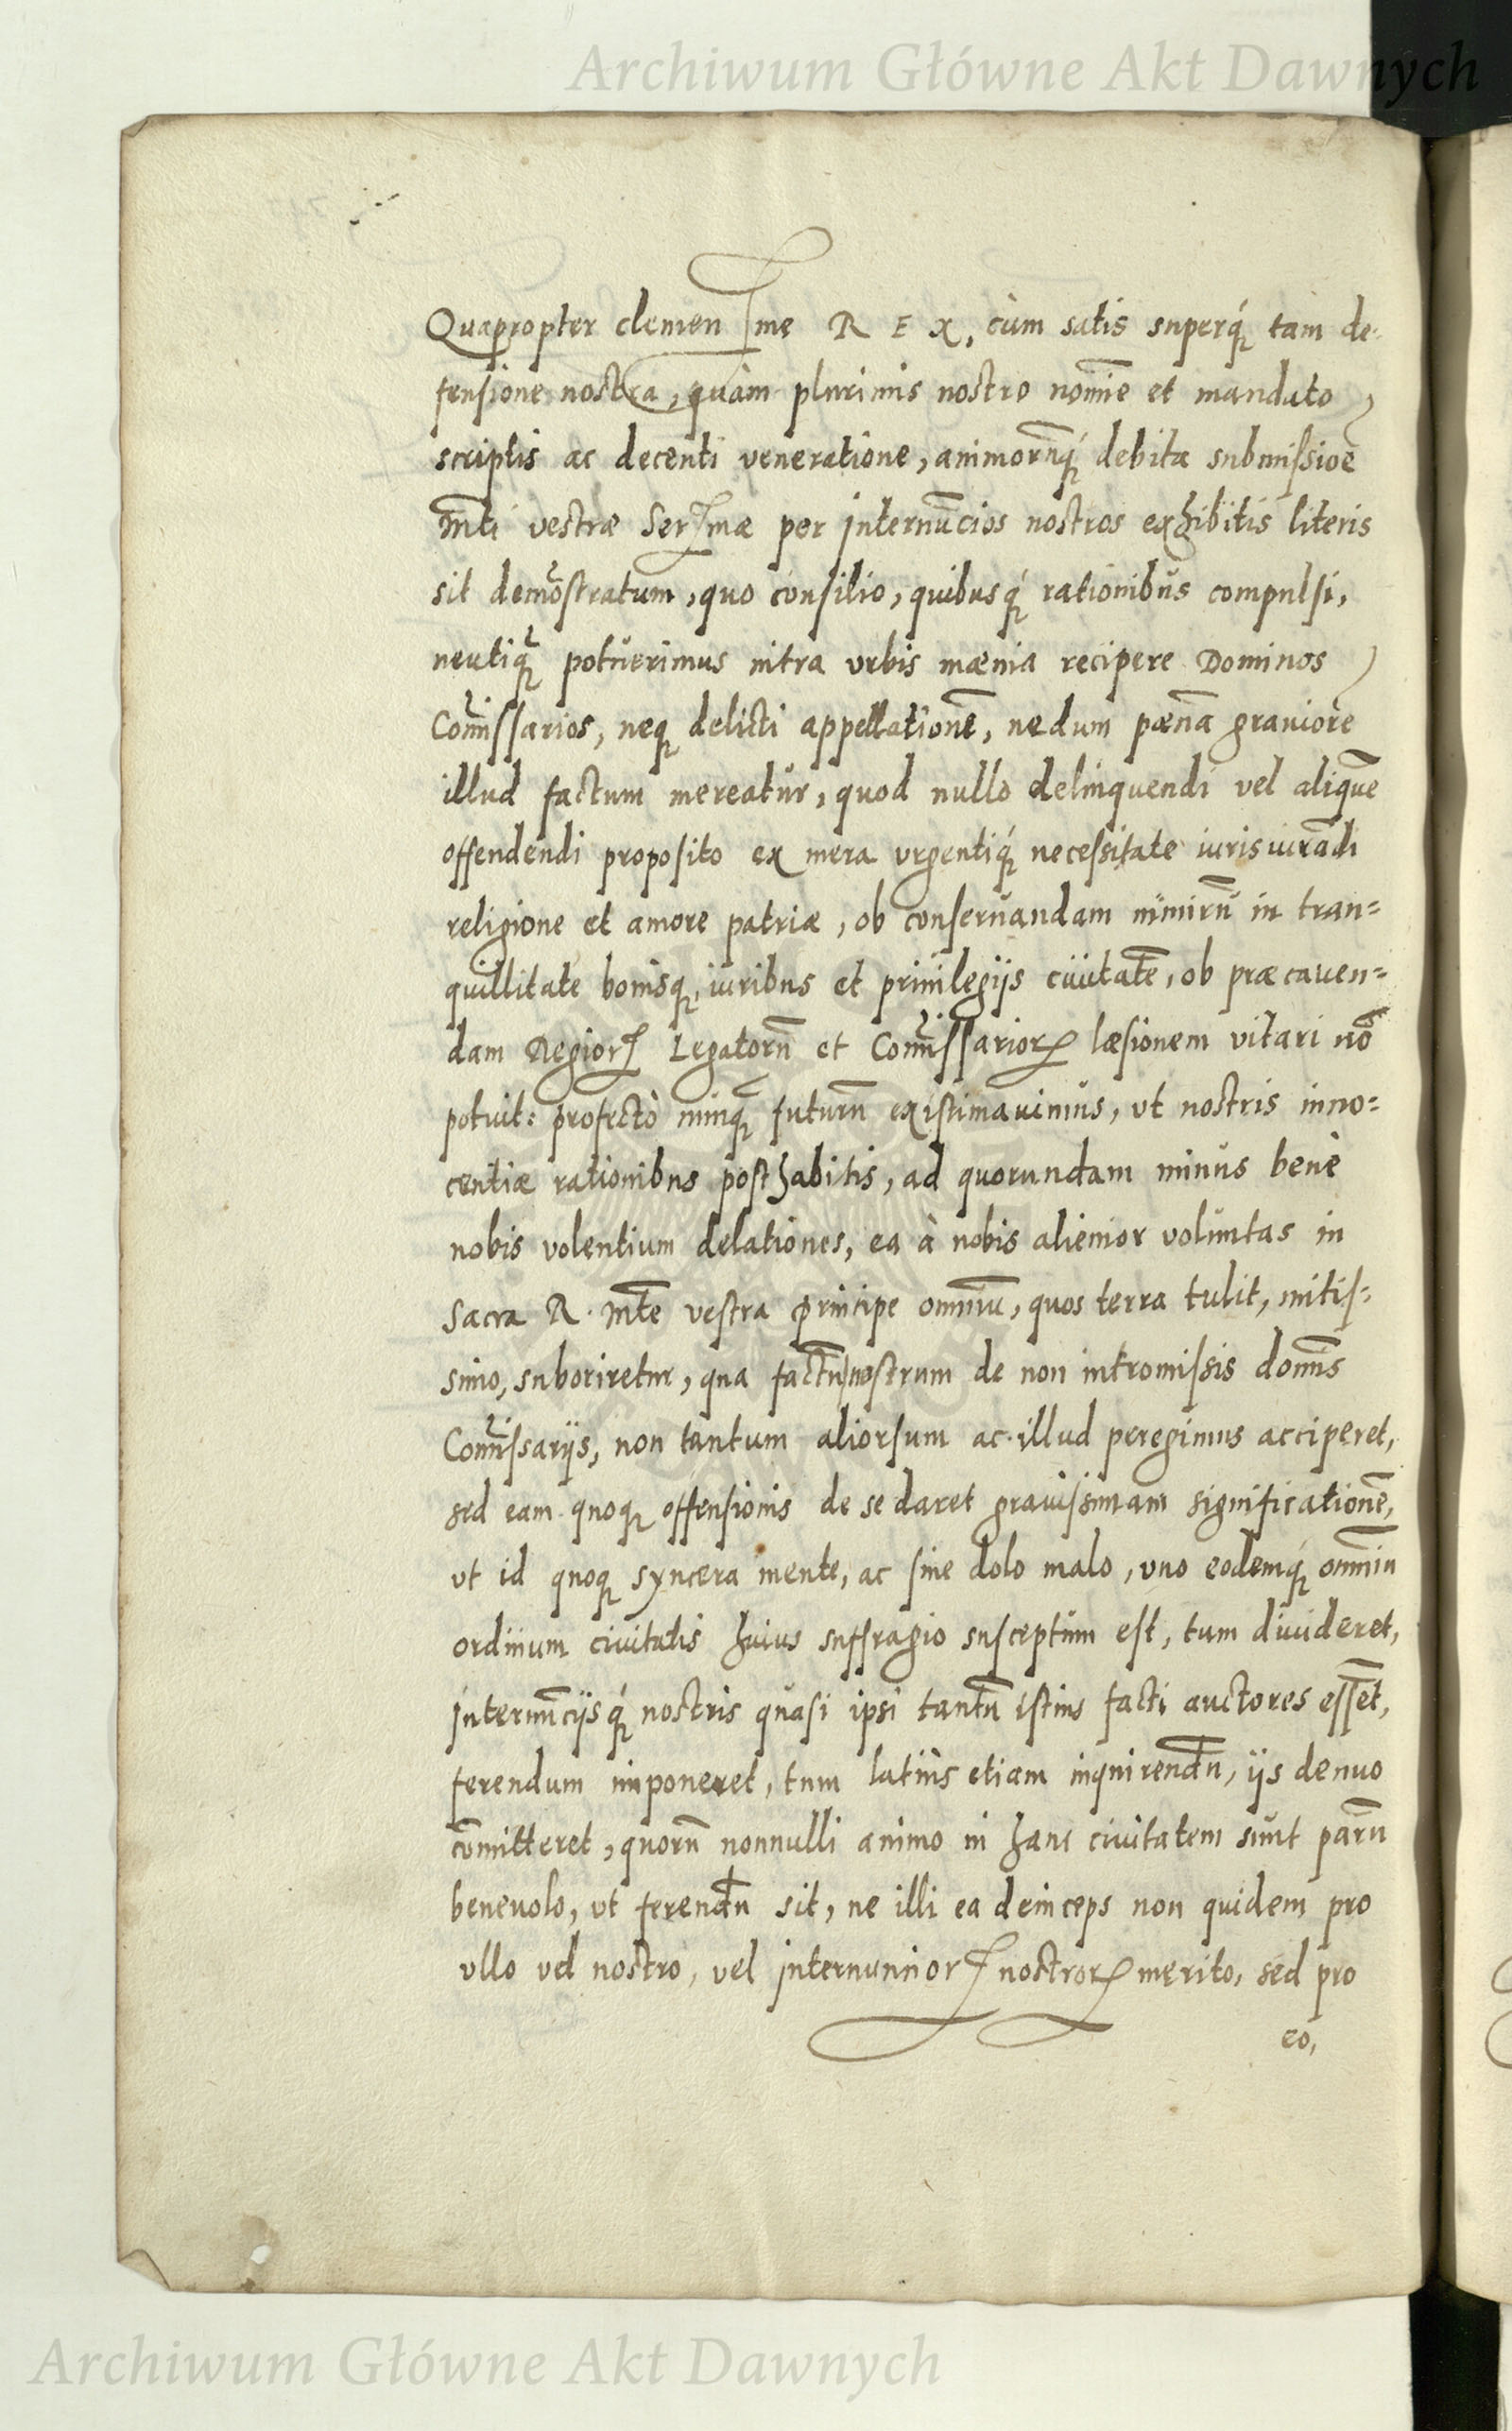 Archiwum Główne Akt Dawnych
Quapropter clemen∫me R E X, cùm satis superq́ꝫ tam de-
fensione nostra, quàm plurimis nostro nom̄ie et mandato
scriptis ac decenti veneratione, animorūq́ꝫ debita submissiōe
M̄ti vestræ Ser∫mæ per internūcios nostros exhibitis literis
sit demōstratum, quo consilio, quibusq́ꝫ rationibus compulsi,
neutiqꝫ̄ potuerimus intra vrbis mænia recipere Dominos
Com̄issarios, neqꝫ delicti appellationē, nedum pænā grauiorē
illud factum mereatur, quod nullo delinquendi vel aliquē
offendendi proposito ex mera vrgentiq́ꝫ necessitate iurisiurādi
religione et amore patriæ, ob conseruandam nimirū in tran=
quillitate bonisqꝫ, iuribus et priuilegijs ciuitatē, ob præcauen=
dam Regiorꝝ Legatorū et Com̄issariorꝝ læsionem vitari nō
potuit: profectò nunqꝫ̄ futurū existimauimus, vt nostris inno=
centiæ rationibus posthabitis, ad quorundam minus benè
nobis volentium delationes, ea à nobis alienior voluntas in
Sacra R. M̄te vestra principe omniū, quos terra tulit, mitis=
simo, suboriretur, qua factū nostrum de non intromissis domīs
Com̄issarijs, non tantum aliorsum ac illud peregimus acciperet,
sed eam quoqꝫ offensionis de se daret grauissimam significationē,
vt id quoqꝫ syncera mente, ac sine dolo malo, vno eodemq́ꝫ omniū
ordinum ciuitatis huius suffragio susceptum est, tum diuideret,
internūcijsq́ꝫ nostris quasi ipsi tantū istius facti auctores essēt,
ferendum imponeret, tum latiùs etiam inquirendū, ijs denuo
cōmitteret, quorū nonnulli animo in hanc ciuitatem sunt parū
beneuolo, vt ferendū sit, ne illi ea deinceps non quidem pro
vllo vel nostro, vel internunciorꝝ nostrorꝝ merito, sed pro
eo,
Archiwum Główne Akt Dawnych